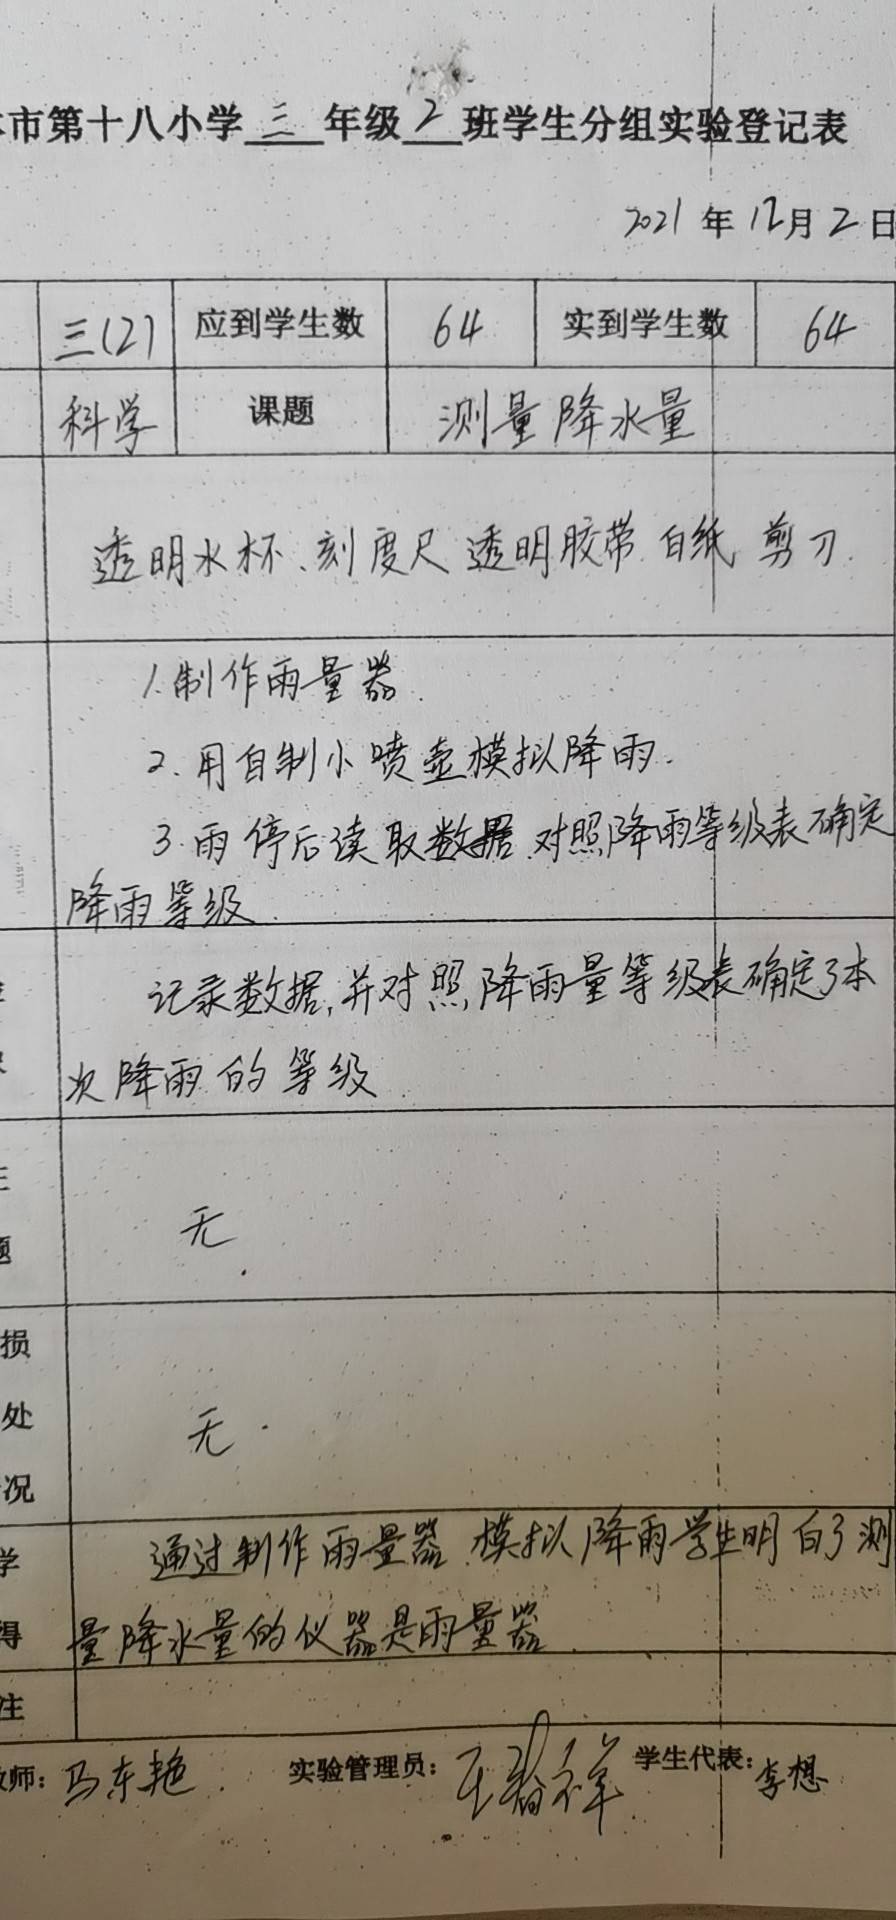 市第十八小学三年级2班学生分组实验登记表
2021年12月2日
三(2) 应到学生数 64 实到学生数 64
科学 课题 测量降水量
透明水杯、刻度尺 透明胶带 白纸 剪刀.
1.制作雨量器.
2.用自制小喷壶模拟降雨.
3.雨停后读取数据.对照降雨等级表确定
降雨等级.
记录数据,并对照降雨量等级表确定了本
次降雨的等级
无
题
损
无.
处
况
学 通过制作雨量器.模拟降雨学生明白了测
得 量降水量的仪器是雨量器
注
师: 马东艳 实验管理员: 学生代表: 李想